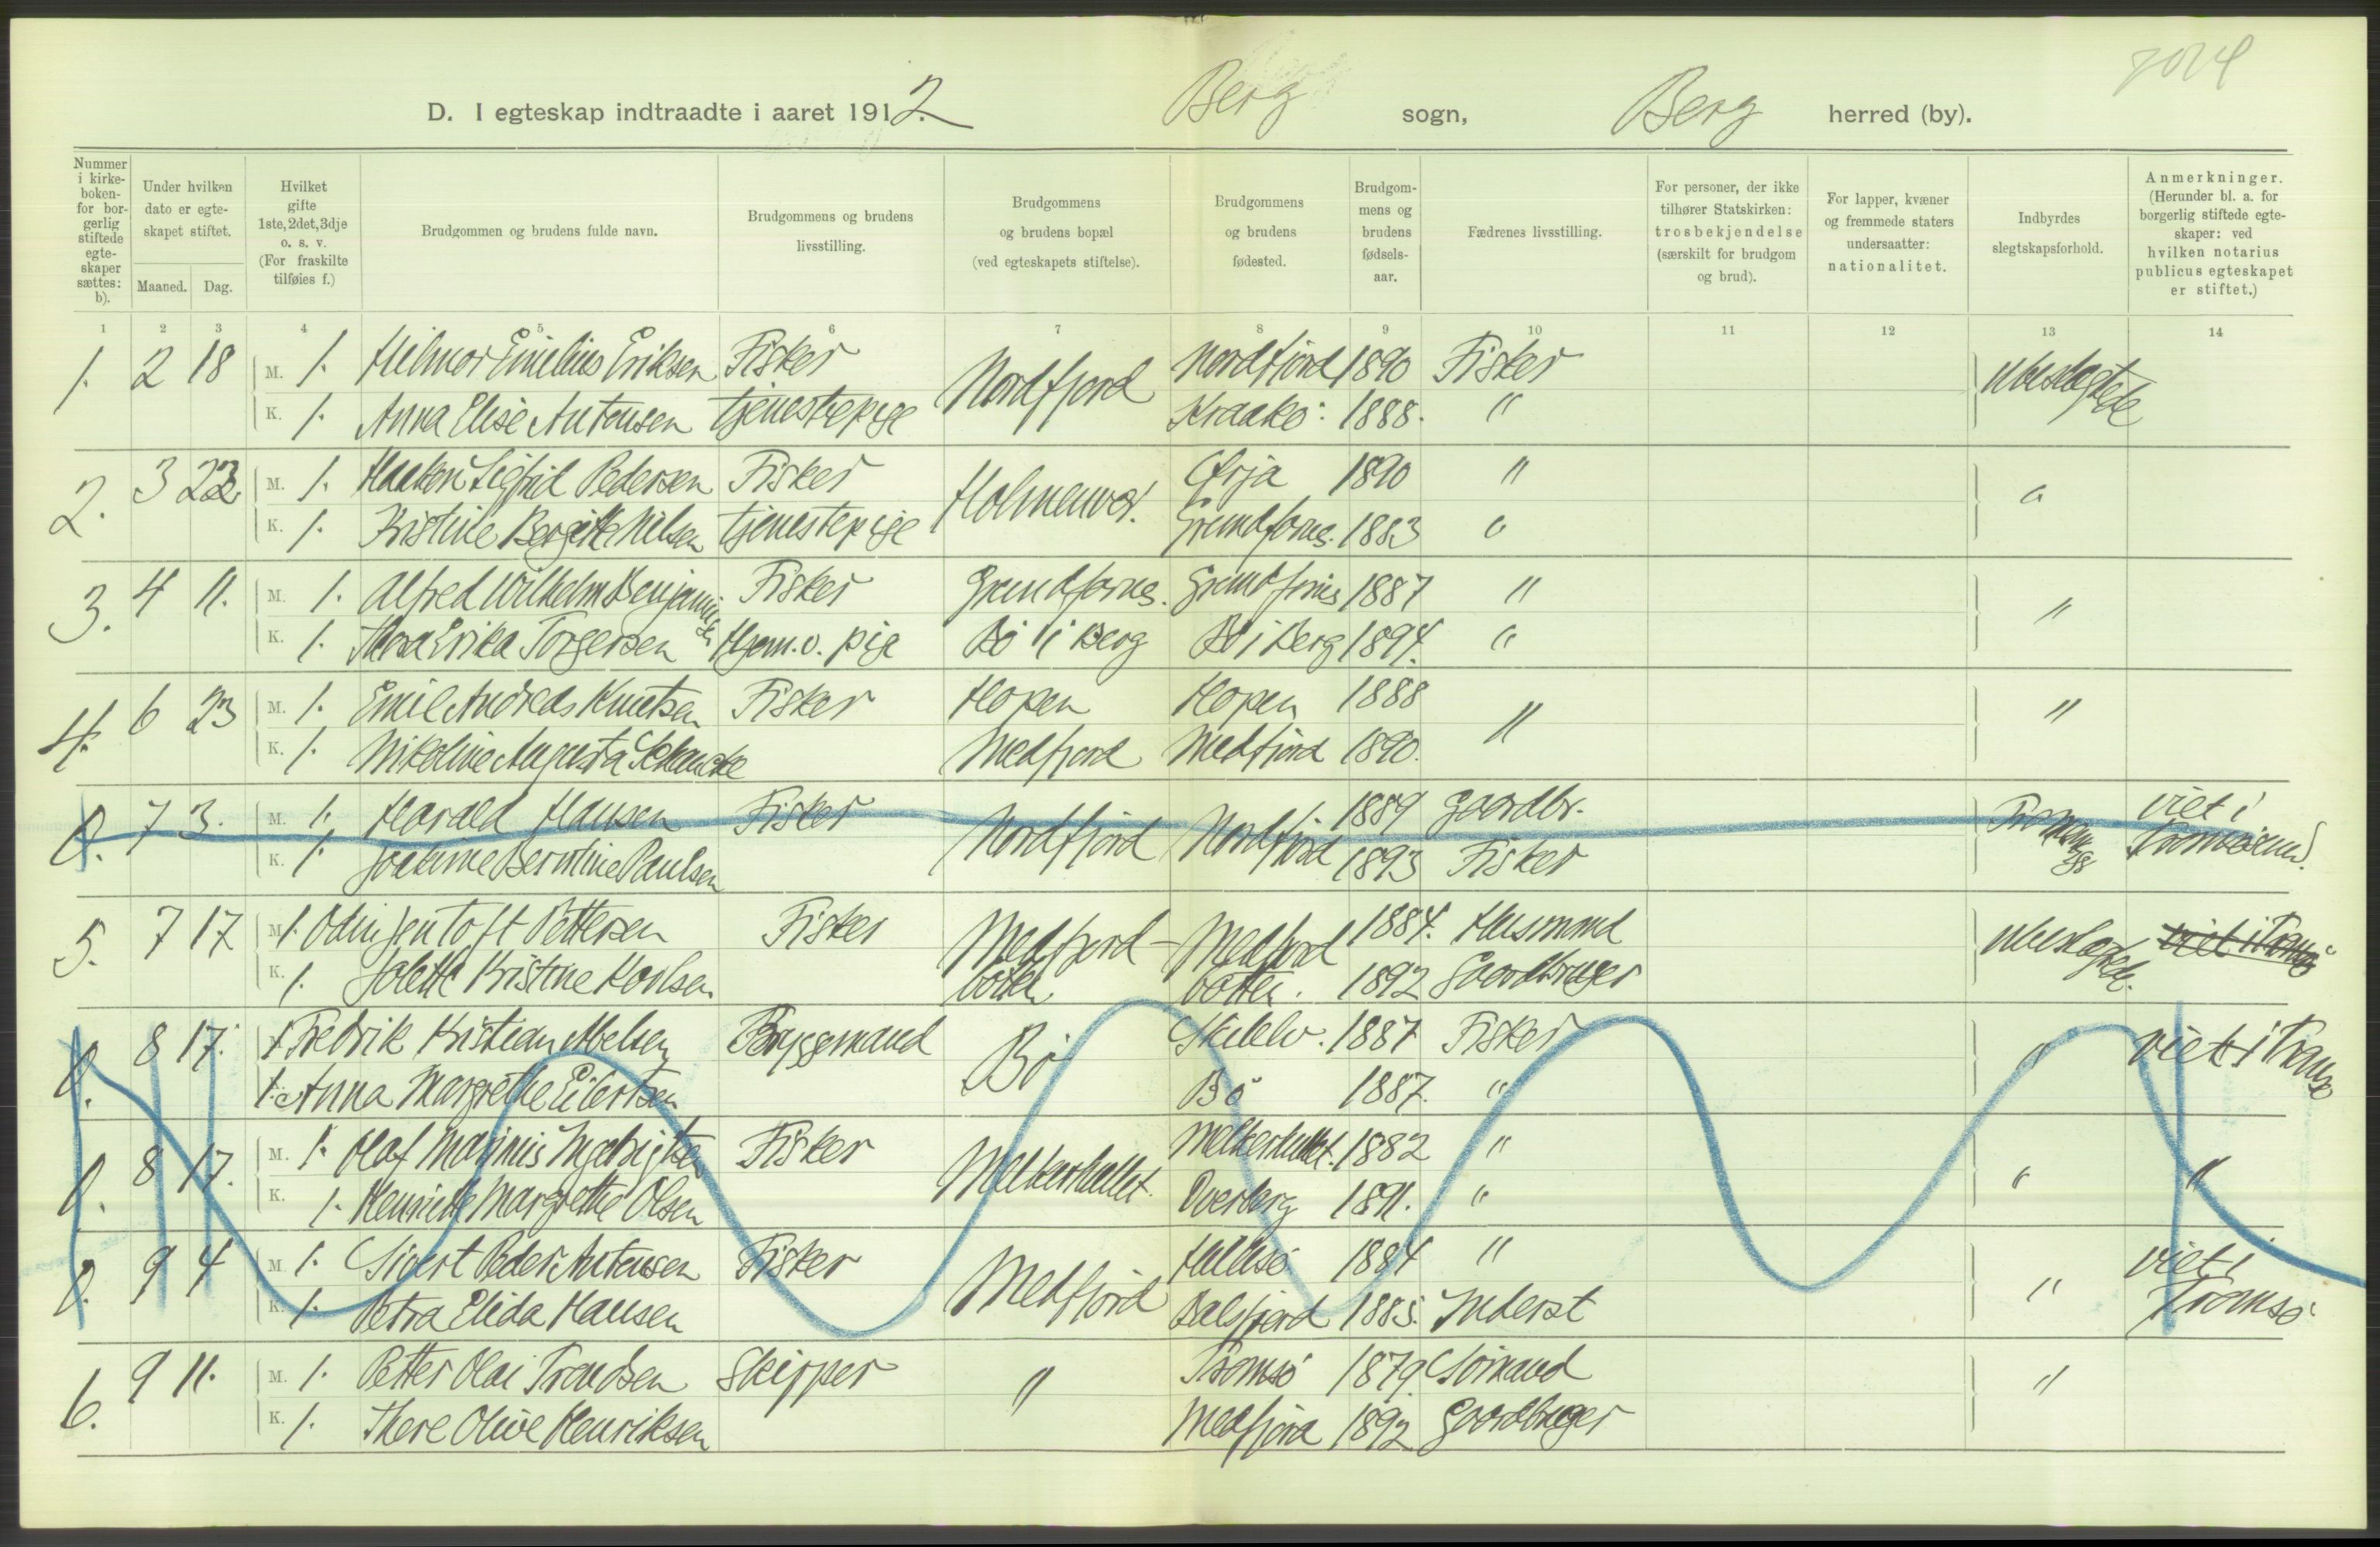 7024
D. I egteskap indtraadte i aaret 1912. Berg sogn, Berg herred (by).
Nummer i kirkeboken- for borgerlig stiftede egteskaper sættes: b).
Under hvilken dato er egteskapet stiftet.
Maaned. Dag.
Hvilket gifte 1ste, 2det, 3dje o. s. v. (For fraskilte tilføies f.)
Brudgommen og brudens fulde navn.
Brudgommens og brudens livsstilling.
Brudgommens og brudens bopæl (ved egteskapets stiftelse).
Brudgommens og brudens fødested.
Brudgommens og brudens fødselsaar.
Fædrenes livsstilling.
For personer, der ikke tilhører Statskirken: trosbekjendelse (særskilt for brudgom og brud).
For lapper, kvæner og fremmede staters undersaatter: nationalitet.
Indbyrdes slegtskapsforhold.
Anmerkninger. (Herunder bl. a. for borgerlig stiftede egteskaper: ved hvilken notarius publicus egteskapet er stiftet.)
1 2 3 4 5 6 7 8 9 10 11 12 13 14
1. 2 18 M. 1. Hilmor Emilius Eriksen Fisker Nordfjord Nordfjord 1890 Fisker ubeslegtede
K. 1. Anna Elise Antonsen tjenestepige Kraakø 1888. "
2. 3 22. M. 1. Haakon Sigfrid Pedersen Fisker Holmenvær. Ersja 1890 " "
K. 1. Kristine Bergitte Nilsen tjenestepige Grundforns. 1883 "
3. 4 11. M. 1. Alfred Wilhelm Benjaminsen Fisker Grundfarnes. Grundfarnes 1887 " "
K. 1. Thora Erika Torgersen Hjem.v. pige Bø i Berg Bø i Berg 1894. "
4. 6 23 M. 1. Emil Andreas Knutsen Fisker Hopen Hopen 1888 " "
K. 1. Nikoline Augusta Schancke Medfjord Medfjord 1890.
0. 7 3. M. 1. Harald Hansen Fisker Nordfjord Nordfjord 1889 Gaardbr. viet i
K. 1. Joakime Berntine Paulsen 1893 Fisker Tromsøsund.
5. 7 17 M. 1. Odin Jentoft Pettersen Fisker Medfjord- Medfjord 1884. Husmand ubeslegtede. viet i Tromsø
K. 1. Jolette Kristine Karlsen botten botten. 1892 Gaardbruger
0. 8 17. 1. Fredrik Kristian Abelsen Bryggemand Bø Skibelv. 1887 Fisker " viet i Tromsø
1. Anna Margrethe Eilertsen Bø 1887. "
0. 8 17. M. 1. Olaf Marinius Ingebrigtsen Fisker Mulkerhullet. 1882 " " "
K. 1. Henriette Margrethe Olsen Overberg 1891. "
0. 9 4 M. 1. Sivert Peder Antonsen Fisker Medfjord 1884 " " viet i
K. 1. Petra Elida Hansen Balsfjord 1885. Inderst Tromsø
6. 9 11. M. 1. Petter Olai Trondsen Skipper " Tromsø 1879. Sømand "
K. 1. There Olive Henriksen Medfjord 1892 Gaardbruger